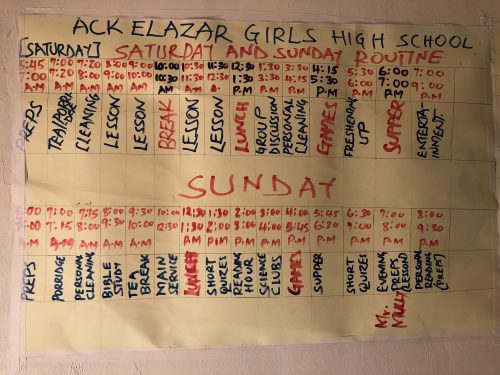 ACK ELAZAR GIRLS HIGH SCHOOL
[SATURDAY] SATURDAY AND SUNDAY ROUTINE
5:45 7:00 7:20 8:00 9:00 10:00 10:30 11:30 12:30 1:30 3:30 4:15 5:30 6:00 7:00
7:00 7:20 8:00 9:00 10:00 10:30 11:30 1:30 3:30 4:15 5:30 6:00 7:00 9:00
A.M A.M A.M A.M A.M AM AM P.M P.M P.M P.M P.M P.M P.M
PREPS
TEA/PORRIDGE
CLEANING
LESSON
LESSON
BREAK
LESSON
LESSON
LUNCH
GROUP
DISCUSSION
PERSONAL
CLEANING
GAMES
FRESHENING
UP
SUPPER
ENTERTAINMENT.
SUNDAY
7:00 7:15 8:00 9:30 10:00 12:30 1:30 2:00 3:00 4:00 5:45 6:30 7:00 8:00
7:00 7:15 8:00 9:30 10:00 12:30 1:30 2:00 3:00 4:00 5:45 6:30 7:00 8:00 9:30
PREPS
PORRIDGE
PERSONAL
CLEANING
BIBLE
STUDY
TEA
BREAK
MAIN
SERVICE
LUNCH
SHORT
QUIZES
READING
HOUR
SCIENCE
CLUBS
GAMES
SUPPER
SHORT
QUIZES
EVENING
PREPS
(LESSON)
Mr.
PERSONAL
READING
(PREP)